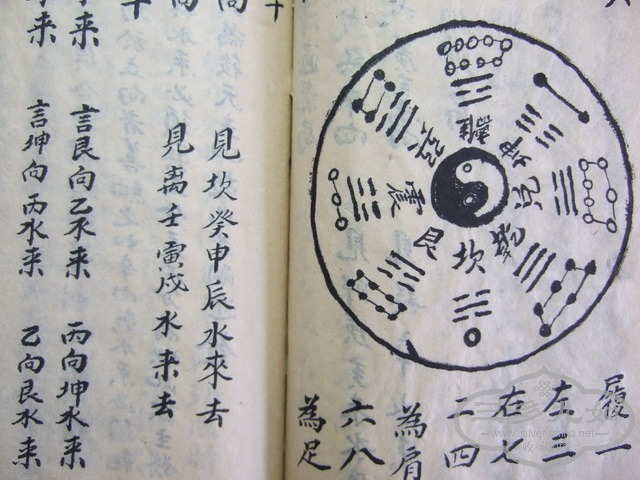 離
坤
兌
乾
坎
艮
震
巽
履一
左三
右七
二四
為肩
六八
為足
見坎癸申辰水來去
見离壬寅戌水来去
来 言艮向乙水来 丙向坤水来
来 言坤向丙水来 乙向艮水来